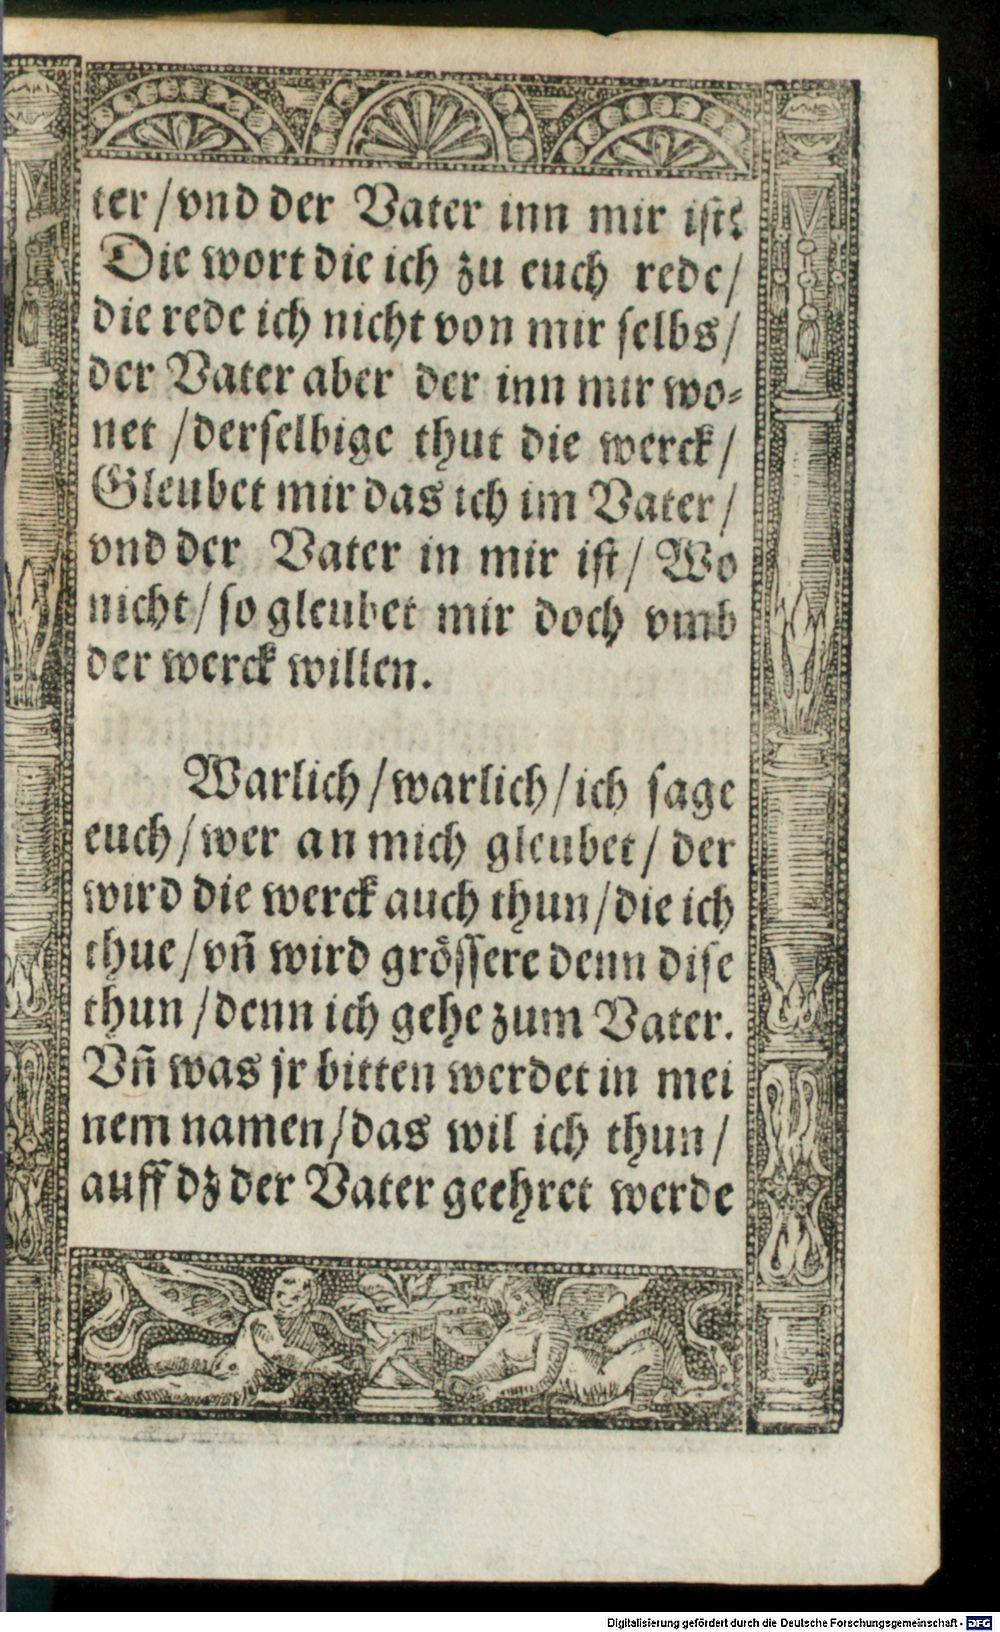 ter / vnd der Vater inn mir ist?
Die wort die ich zu euch rede /
die rede ich nicht von mir selbs /
der Vater aber der inn mir wo-
net / derselbige thut die werck /
Gleubet mir das ich im Vater /
vnd der Vater in mir ist / Wo
nicht / so gleubet mir doch vmb
der werck willen.
Warlich / warlich / ich sage
euch / wer an mich gleubet / der
wird die werck auch thun / die ich
thue / vñ wird grössere denn dise
thun / denn ich gehe zum Vater.
Vñ was jr bitten werdet in mei
nem namen / das wil ich thun /
auff dz der Vater geehret werde
Digitalisierung gefördert durch die Deutsche Forschungsgemeinschaft - DFG